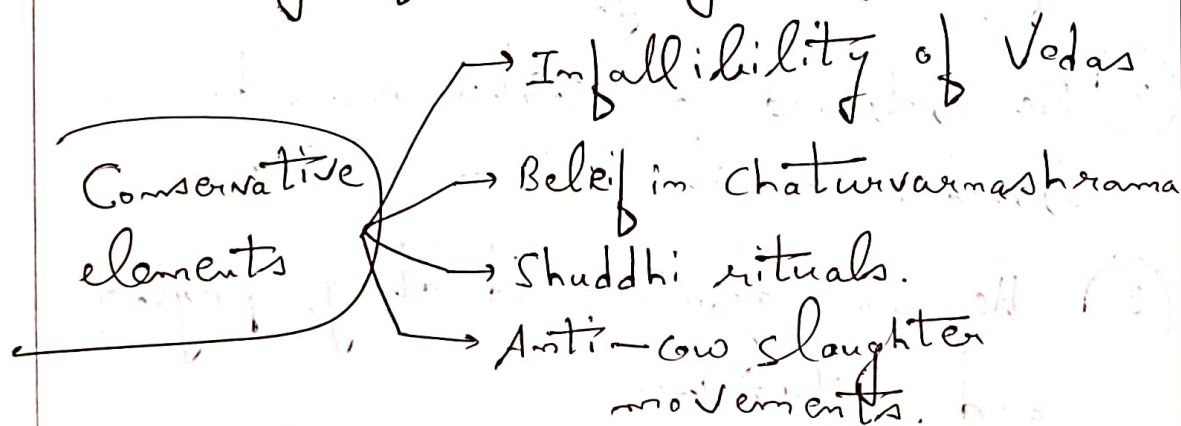 Conservative
elements
→ Infallibility of Vedas
→ Beleif in Chaturvarnashrama
→ Shuddhi rituals.
→ Anti-cow slaughter
movements.